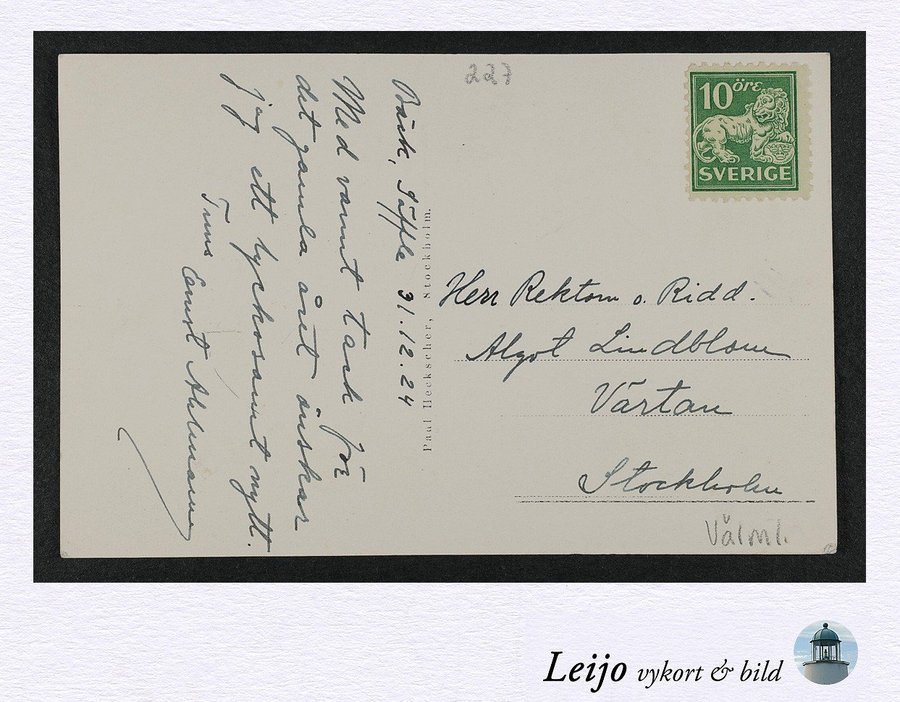 227
10 öre
SVERIGE
Bäck, Säffle 31.12.24
Med varmt tack för
det gamla året önskar
jag ett lyckosamt nytt.
Ernst Ahlmann
Paul Heckscher, Stockholm.
Herr Rektorn o. Ridd.
Algot Lindblom
Värtan
Stockholm
Välml.
Leijo vykort & bild